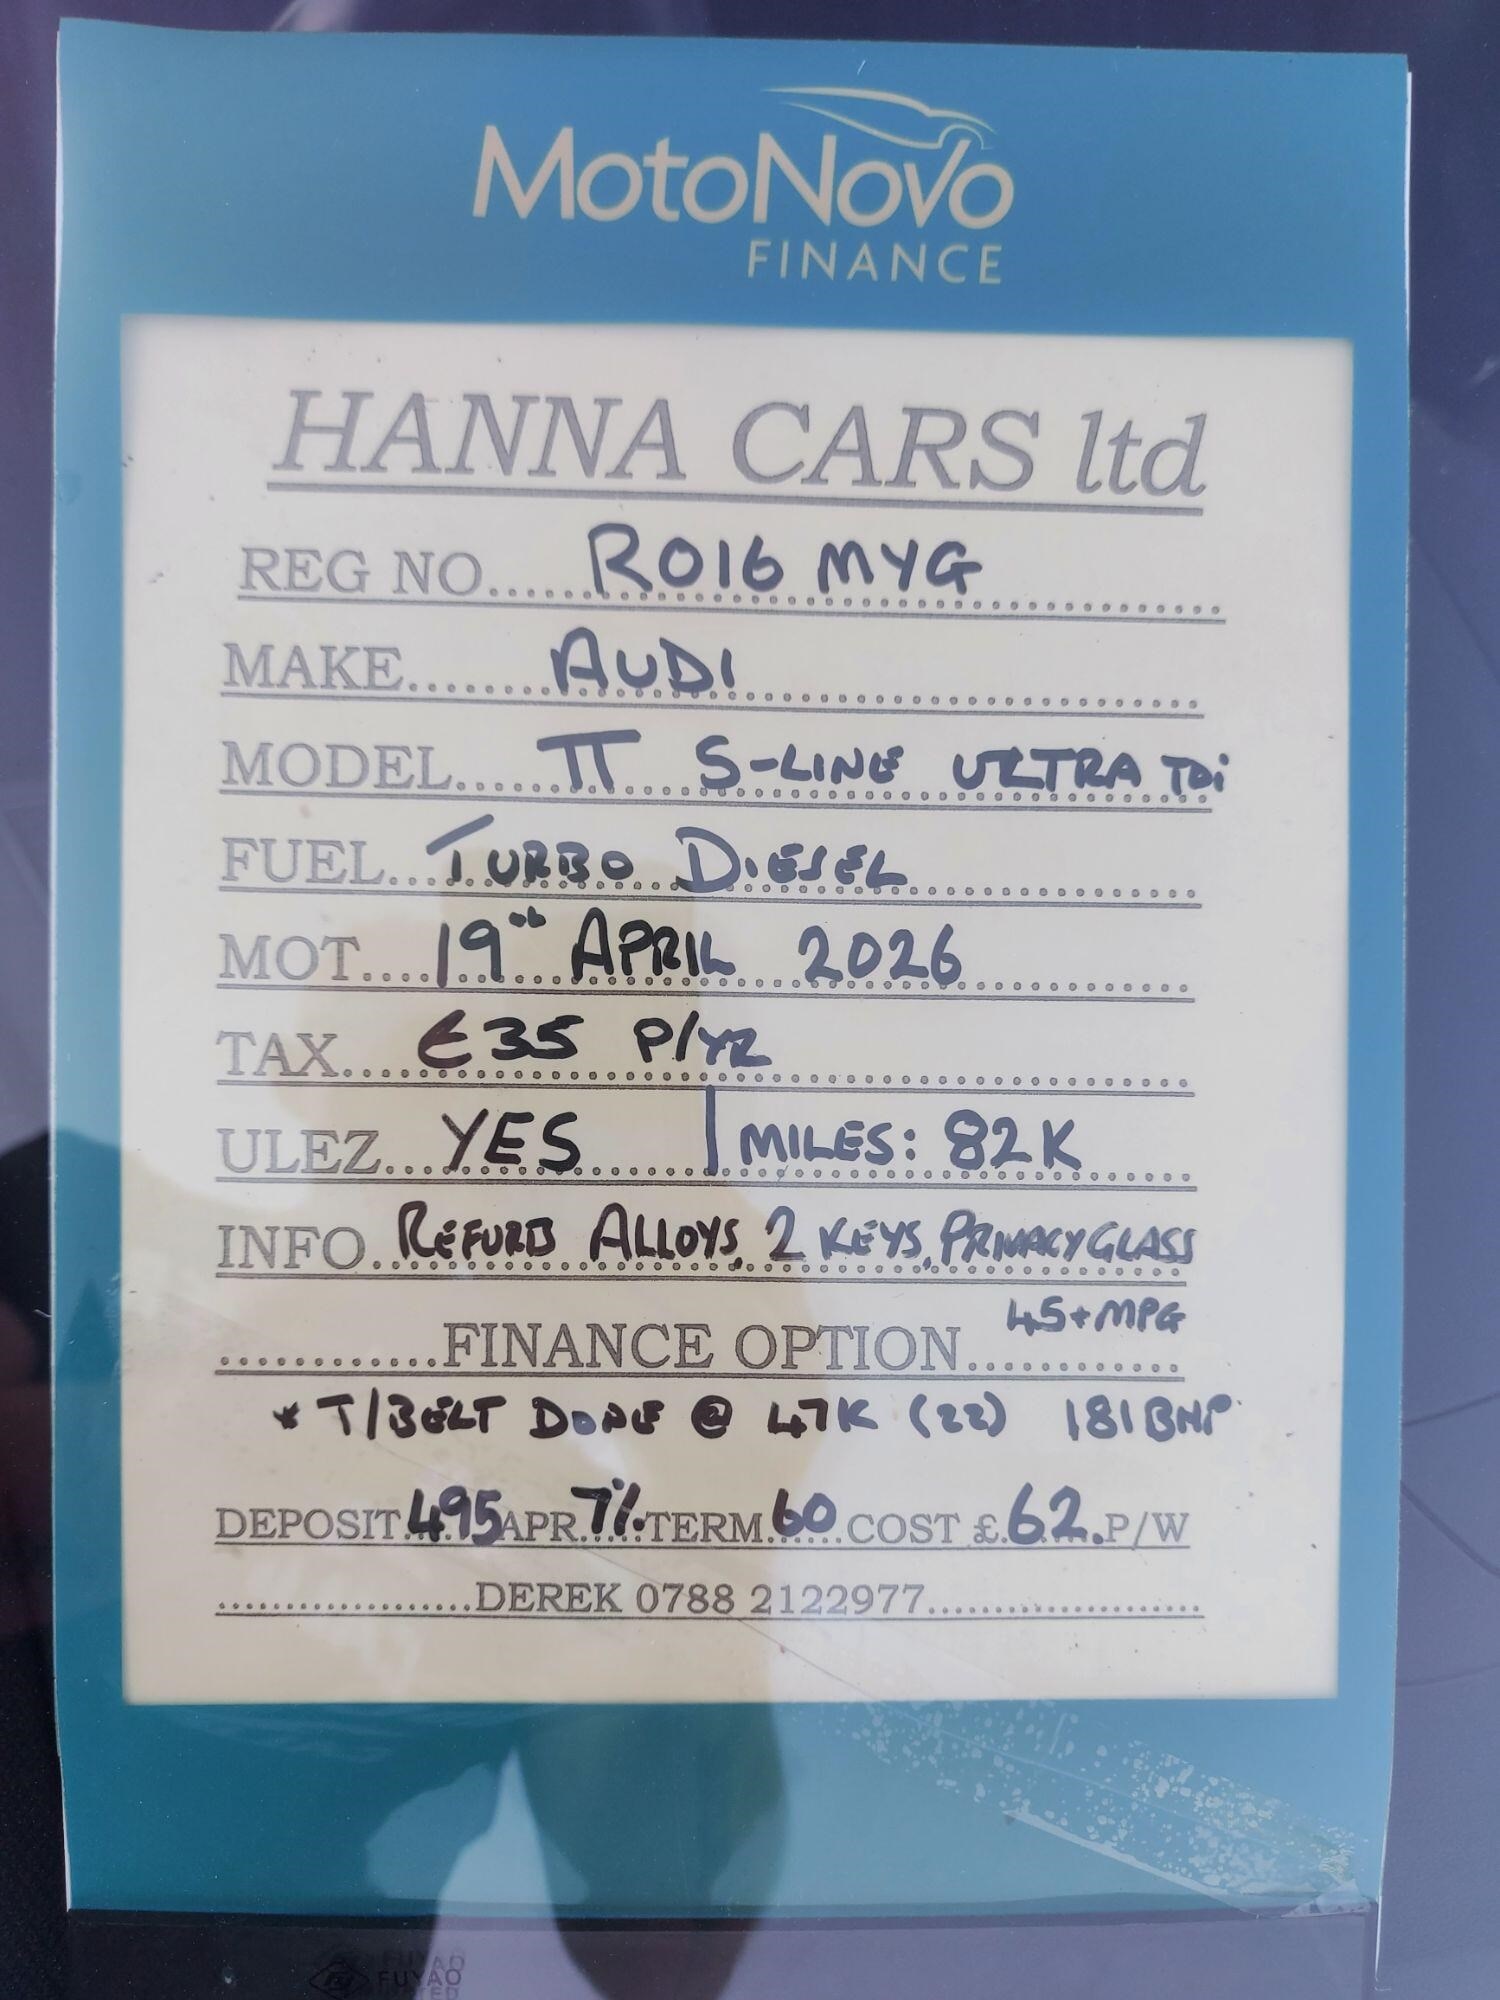 MotoNovo
FINANCE
HANNA CARS ltd
REG NO...... RO16 MYG
MAKE...... AUDI
MODEL...... TT S-LINE ULTRA TDi
FUEL... TURBO DIESEL
MOT.... 19th APRIL 2026
TAX.... £35 P/YR
ULEZ... YES | MILES: 82K
INFO. REFURB ALLOYS, 2 KEYS, PRIVACY GLASS
45+MPG
............FINANCE OPTION............
* T/BELT DONE @ 47K (22) 181BHP
DEPOSIT 495 APR 7% TERM 60 COST £ 62. P/W
....................DEREK 0788 2122977.....................
FUYAO